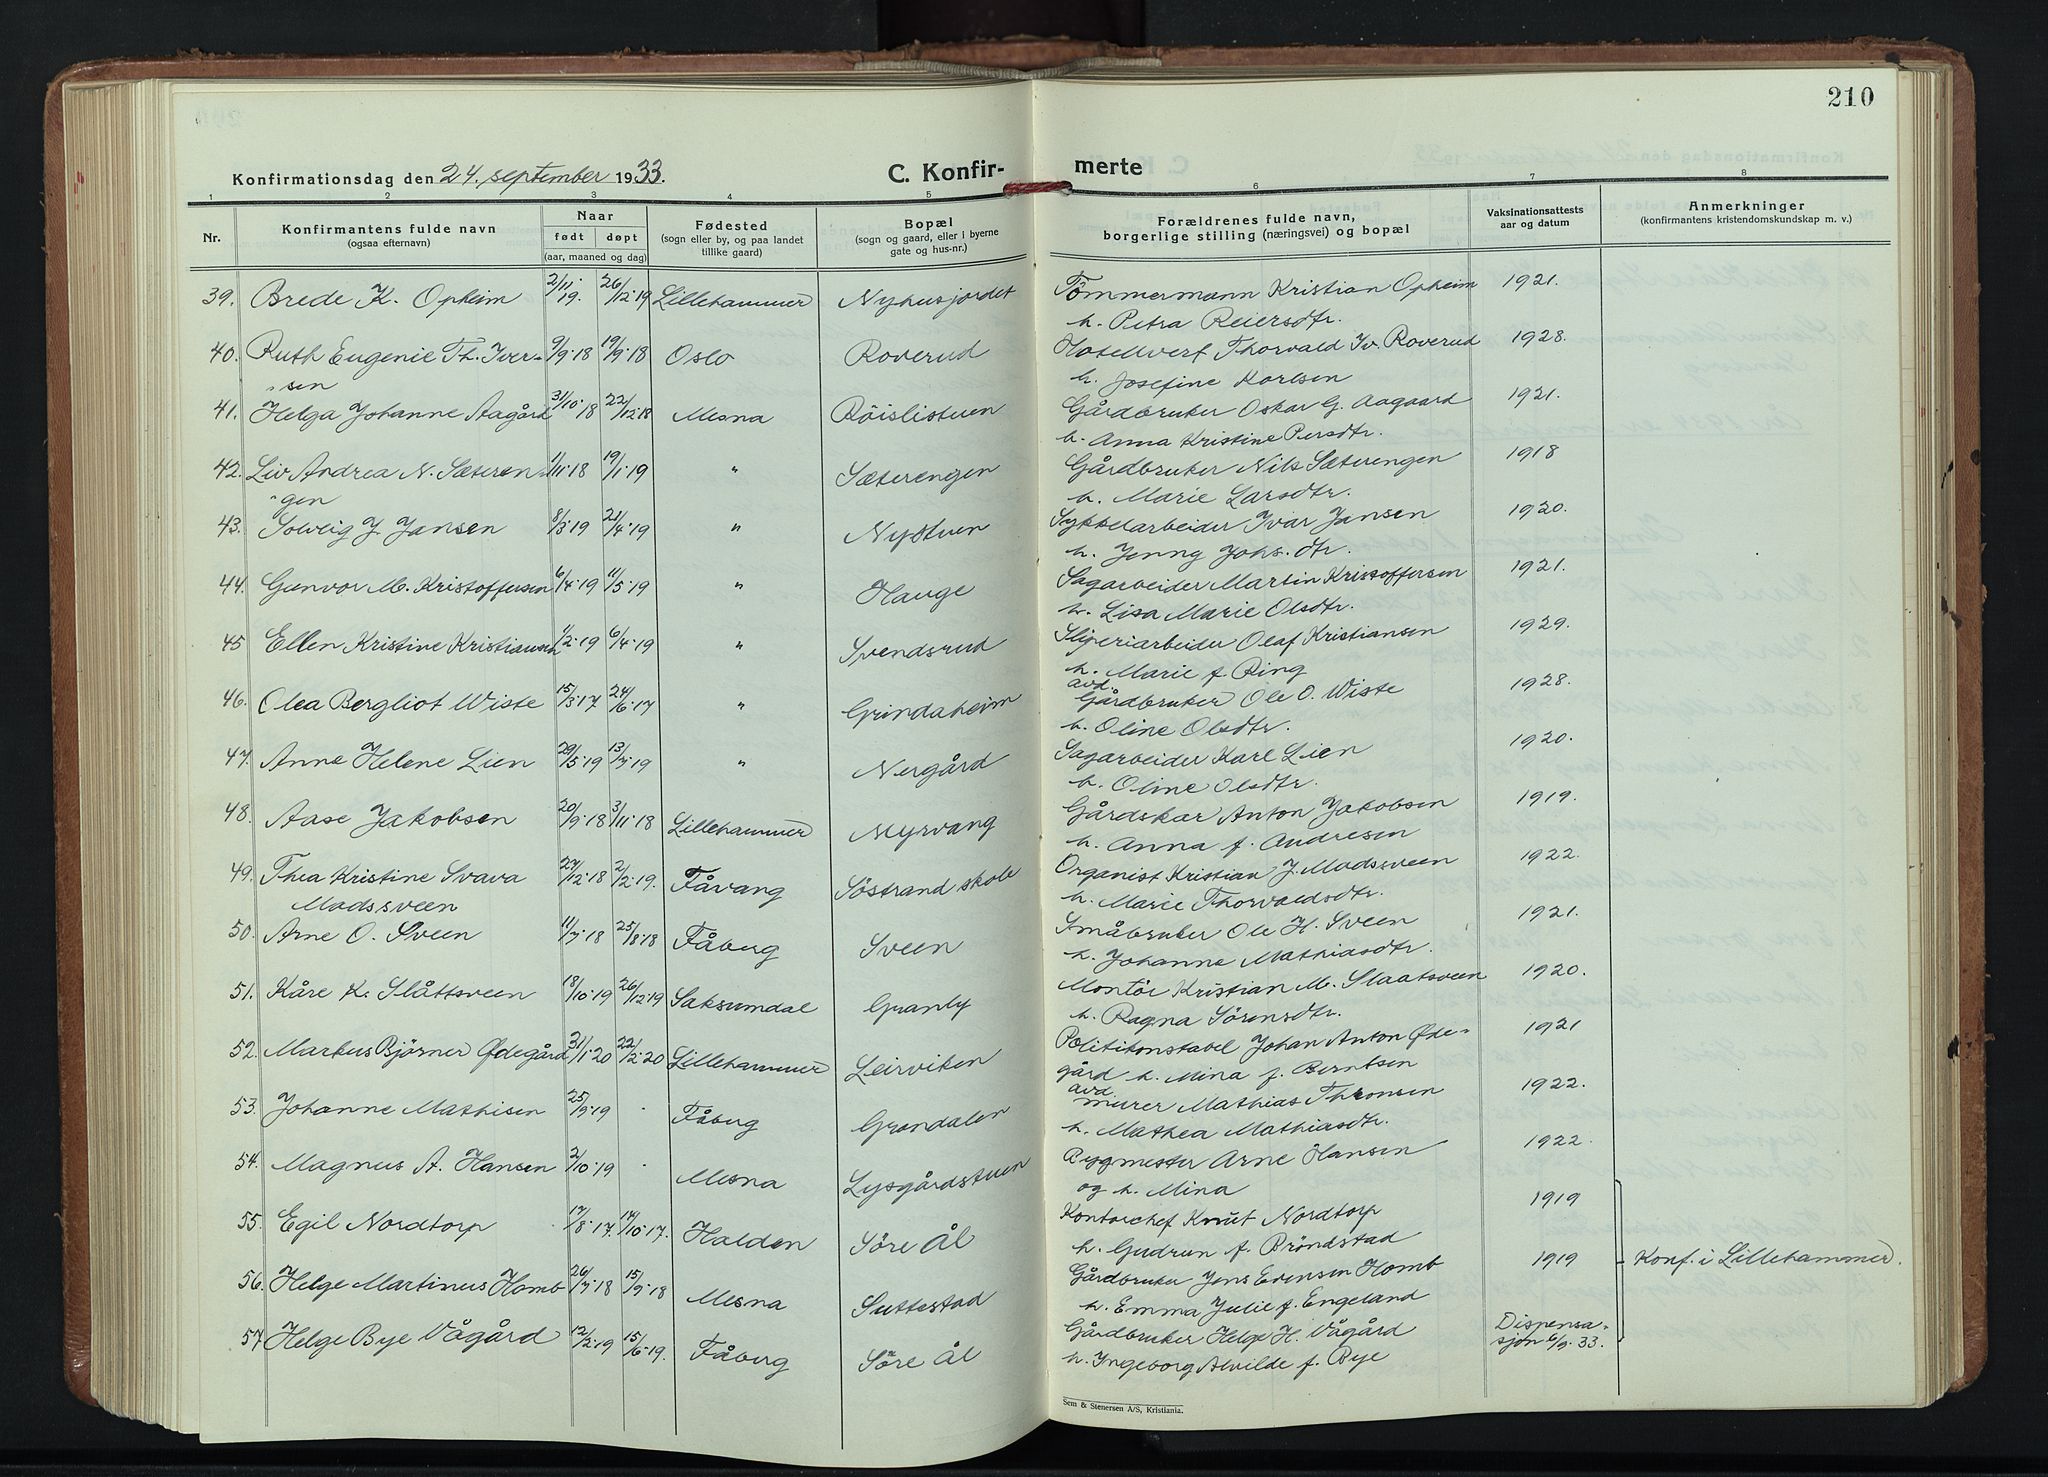 210
Konfirmationsdag den 24. september 1933.
C. Konfir- merte
1 2 3 4 5 6 7 8
Nr.
Konfirmantens fulde navn
(ogsaa efternavn)
Naar
født døpt
(aar, maaned og dag)
Fødested
(sogn eller by, og paa landet
tillike gaard)
Bopæl
(sogn og gaard, eller i byerne
gate og hus-nr.)
Forældrenes fulde navn,
borgerlige stilling (næringsvei) og bopæl
Vaksinationsattests
aar og datum
Anmerkninger
(konfirmantens kristendomskundskap m. v.)
39. Brede K. Opheim 2/11 19. 26/12 19 Lillehammer Nyhusjordet Tömmermann Kristian Opheim 1921.
h. Petra Reiersdtr.
40. Ruth Eugenie Th. Iver- 9/9·18 19/9·18 Oslo Roverud Hotellvert Thorvald Iv. Roverud 1928.
"sen h. Josefine Karlsen
41. Helga Johanne Aagård 31/10·18 22/12·18 Mesna Röislistuen Gårdbruker Oskar G. Aagaard 1921.
h. Anna Kristine Persdtr.
42. Liv Andrea N. Sæteren- 1/11·18 19/1·19 " Sæterengen Gårdbruker Nils Sæterengen 1918
"gen h. Marie Larsdtr.
43. Solveig J. Jansen 8/3·19 21/4·19 " Nystuen Sykkelarbeider Ivar Jansen 1920.
h. Jenny Johs.dtr.
44. Gunvor M. Kristoffersen 6/4·19 11/5·19 " Hauge Sagarbeider Martin Kristoffersen 1921.
h. Lisa Marie Olsdtr.
45 Ellen Kristine Kristiansen 1/2·19 6/4·19 " Svendsrud Sliperiarbeider Olaf Kristiansen 1929.
h. Marie f. Ring
46. Olea Bergliot Wiste 15/3·17 24/6·17 " Grindaheim avd. Gårdbruker Ole O. Wiste 1928.
h. Oline Olsdtr.
47. Anne Helene Lien 29/5·19 13/7·19 " Nergård Sagarbeider Karl Lien 1920.
h. Oline Olsdtr.
48. Aase Jakobsen 20/9·18 3/11·18 Lillehammer Myrvang Gårdskar Anton Jakobsen 1919.
h. Anna f. Andresen
49. Thea Kristine Svava 27/12·18 2/2·19. Fåvang Söstrand skole Organist Kristian J. Madssveen 1922.
Madssveen h. Marie Thorvaldsdtr.
50. Arne O. Sveen 11/7·18 25/8·18 Fåberg Sveen Småbruker Ole H. Sveen 1921.
h. Johanne Mathiasdtr.
51. Kåre K. Slåttsveen 18/10·19 26/12·19 Saksumdal Granly Montör Kristian M. Slaatsveen 1920.
h. Ragna Sörensdtr.
52. Markus Björner Ødegård 31/1·20 22/2·20 Lillehammer Leirviken Politikonstabel Johan Anton Øde- 1921
gård h. Mina f. Berntsen
53. Johanne Mathisen 25/9·19 · Fåberg Grøndalen avd. murer Mathias Thronsen 1922.
h. Mathea Mathiasdtr.
54. Magnus A. Hansen 2/10·19 · Mesna Lysgårdstuen Bygmester Arne Hansen 1922.
og h. Mina
55. Egil Nordtorp 17/8·17. 14/10·17. Halden Söre Ål Kontorchef Knut Nordtorp 1919
h. Gudrun f. Bröndstad
56. Helge Martinus Homb 26/7·18 15/9·18 Mesna Suttestad Gårdbruker Jens Evensen Homb 1919 Konf. i Lillehammer.
h. Emma Julie f. Engeland
57 Helge Bye Vågård 12/2·19 15/6·19. Fåberg Söre Ål Gårdbruker Helge H. Vågård Dispensa-
sjon 6/9·33.
h. Ingeborg Alvilde f. Bye
Sem & Stenersen A/S, Kristiania.